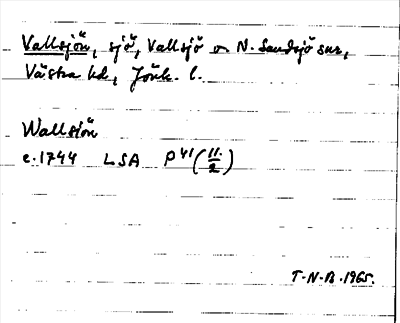 Vallsjön, sjö, Vallsjö o N. Sandsjö snr,
Västra hd, Jönk. l.
Wallsiön
c. 1744 LSA P 41 (11/2)
T-N-B. 1965.